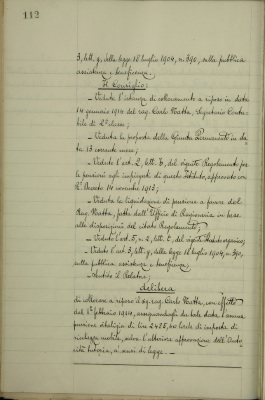 112
3, lett. g, della legge 18 luglio 1904, n. 390, sulla pubblica
assistenza e beneficenza.
Il Consiglio;
- Veduta l'istanza di collocamento a riposo in data
14 gennaio 1914 del rag. Carlo Hatha, Segretario Conta-
bile di 2ª classe;
- Veduta la proposta della Giunta Permanente in da-
ta 13 corrente mese;
- Veduto l'art. 2, lett. B, del vigente Regolamento per
le pensioni agli impiegati di questo Istituto, approvato con
R.° Decreto 14 novembre 1912;
- Veduta la liquidazione di pensione a favore del
Rag. Hatha, fatta dall'Ufficio di Ragioneria in base
alle disposizioni del citato Regolamento;
- Veduto l'art. 5, n. 2, lett. C, del vigente Statuto organico;
- Veduto l'art. 3, lett. g, della legge 18 luglio 1904, n. 390,
sulla pubblica assistenza e beneficenza;
- Sentito il Relatore;
delibera
di collocare a riposo il sig. rag. Carlo Hatha, con effetto
dal 1° febbraio 1914, assegnandogli da tale data l'annua
pensione vitalizia di lire 2425,40 lorde di imposta di
ricchezza mobile, salvo l'ulteriore approvazione dell'Auto-
rità tutoria, a sensi di legge. -